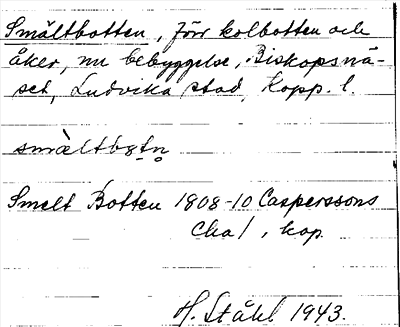 Smältbotten, förr kolbotten och
åker, nu bebyggelse, Biskopsnä-
set, Ludvika stad, Kopp. l.
smältbotn
Smelt Botten 1808-10 Casperssons
Cha/, kop
H. Ståhl 1943.